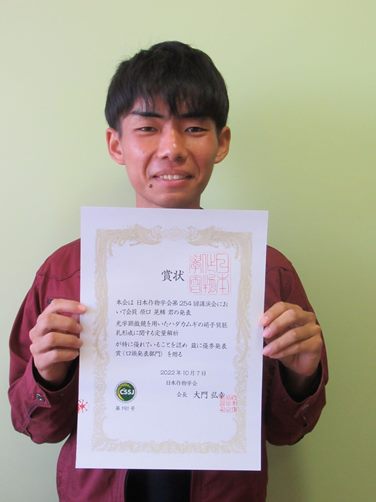 賞状
本会は 日本作物学会第254回講演会にお
いて会員 原口 晃輔 君の発表
光学顕微鏡を用いたハダカムギの硝子質胚
乳形成に関する定量解析
が特に優れていることを認め 茲に優秀発表
賞(口頭発表部門)を贈る
2022年10月7日
日本作物学会
会長 大門 弘幸
CSSJ